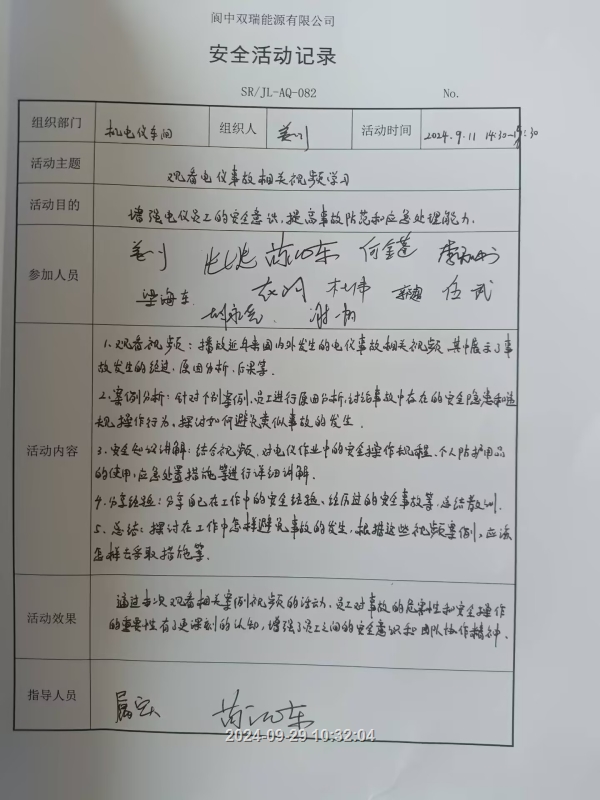 阆中双瑞能源有限公司
安全活动记录
SR/JL-AQ-082 No.
组织部门 机电仪车间 组织人 姜川 活动时间 2024.9.11 14:30-15:30
活动主题 观看电仪事故相关视频学习
活动目的 增强电仪员工的安全意识,提高事故防范和应急处理能力.
姜川 何金蓬
参加人员
梁海东 杜伟 任武
活动内容
1.观看视频:播放近年来国内外发生的电仪事故相关视频,其中展示了事
故发生的经过,原因分析,后果等.
2.案例分析:针对个别案例,员工进行原因分析,讨论事故中存在的安全隐患和违
规操作行为,探讨如何避免类似事故的发生.
3.安全知识讲解:结合视频,对电仪作业中的安全操作规程,个人防护用品
的使用,应急处置措施等进行详细讲解.
4.分享经验:分享自己在工作中的安全经验、经历过的安全事故等,总结教训.
5.总结:探讨在工作中怎样避免事故的发生,根据这些视频案例,应该
怎样去采取措施等.
活动效果
通过本次观看相关案例视频的活动,员工对事故的危害性和安全操作
的重要性有了更深刻的认知,增强了员工之间的安全意识和团队协作精神.
指导人员
2024-09-29 10:32:04